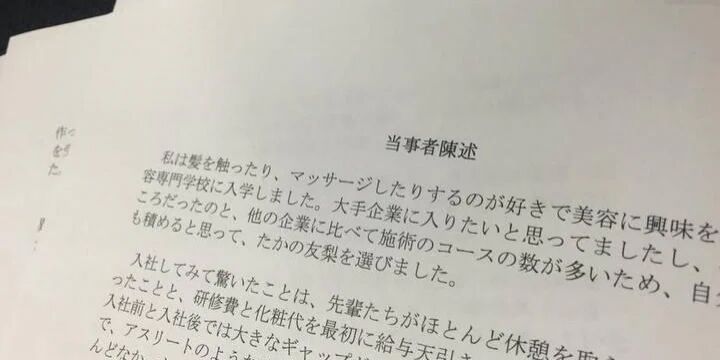 当事者陳述
私は髪を触ったり、マッサージしたりするのが好きで美容に興味を
容専門学校に入学しました。大手企業に入りたいと思ってましたし、
ころだったのと、他の企業に比べて施術のコースの数が多いため、自
も積めると思って、たかの友梨を選びました。
入社してみて驚いたことは、先輩たちがほとんど休憩を取
ったことと、研修費と化粧代を最初に給与天引き
入社前と入社後では大きなギャップ
で、アスリートのような
んどなか
作
を
た。